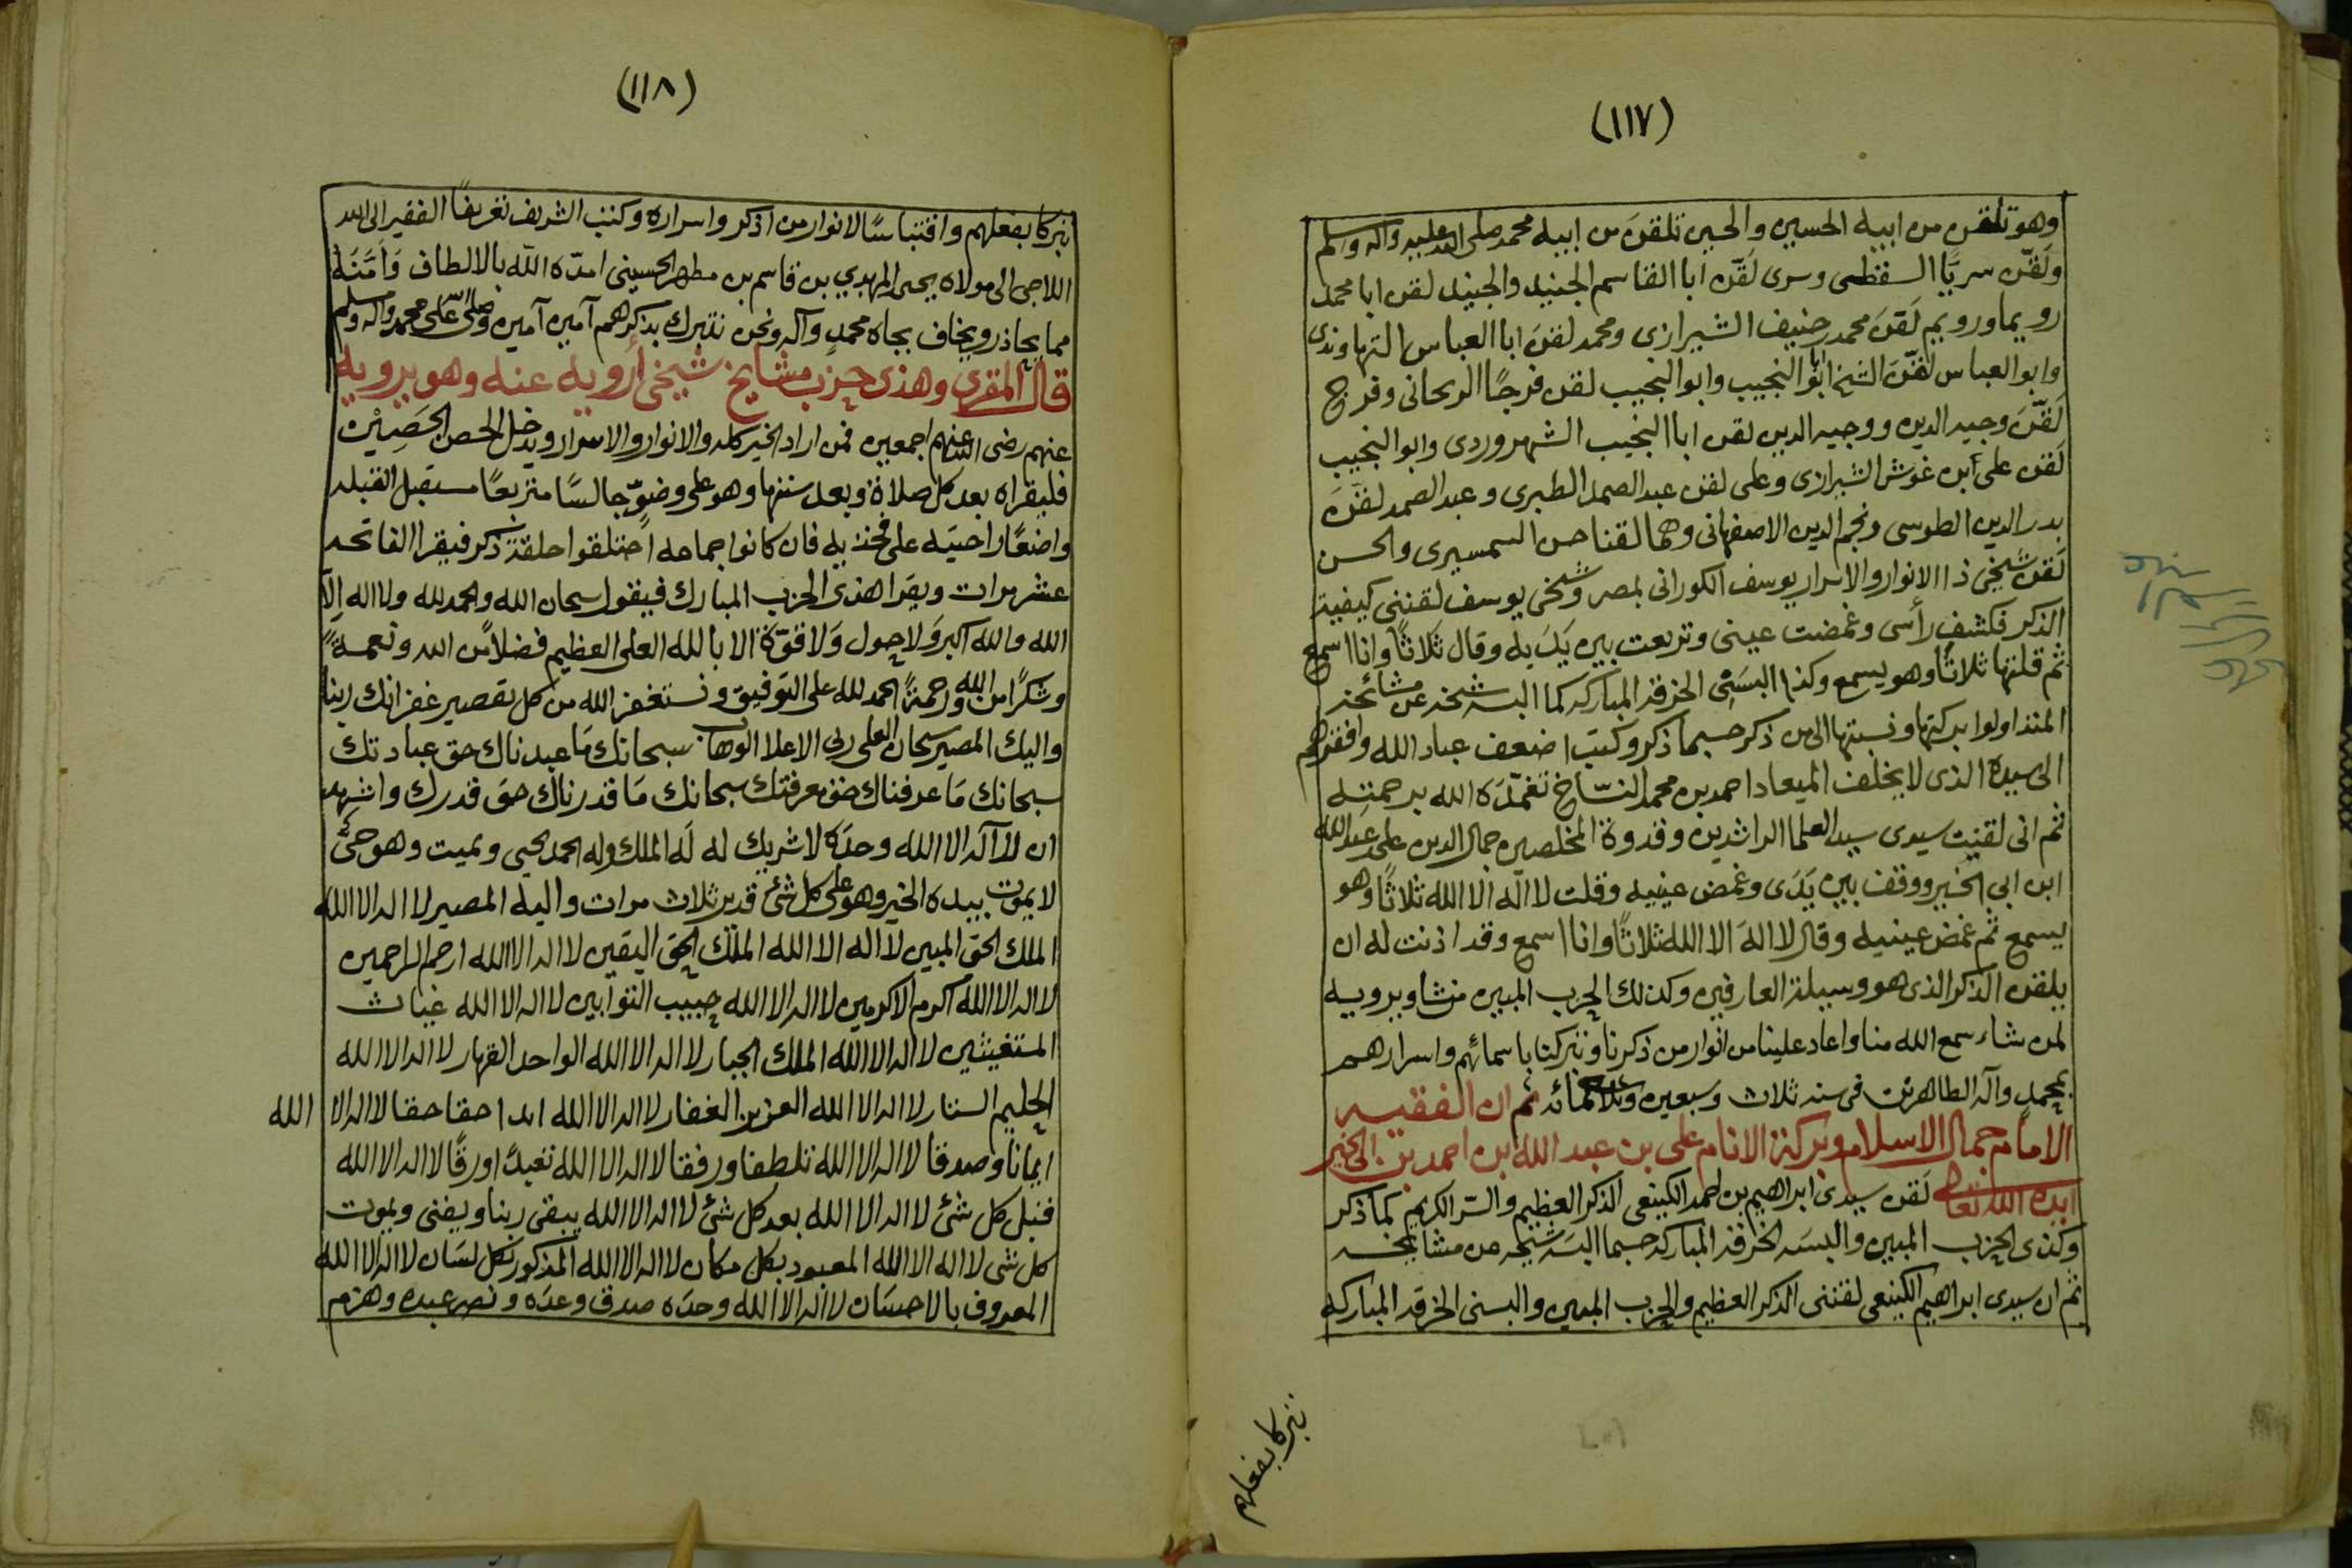 (١١٧)
وهو تلقن من ابيه الحسين والحسين تلقن من ابيه محمد صلى الله عليه وآله وسلم
ولَقّن سريًا السقطى وسرى لَقّن ابا القاسم الجنيد والجنيد لقن ابا محمد
رويما ورويم لَقن محمد حنيف الشيرازى ومحمد لقن ابا العباس النهاوندى
وابو العباس لقّن الشيخ ابو النجيب وابو النجيب لقن فرجًا الريحانى وفرج
لَقّن وجيه الدين ووجيه الدين لقن ابا النجيب الشهروردى وابو النجيب
لقن على ابن غوش الشيرازى وعلى لقن عبد الصمد الطبرى وعبد الصمد لقن
بدر الدين الطوسى ونجم الدين الاصفهانى وهما لقنا حسن السمسيرى والحسن
لَقن شيخى ذا الانوار والاسرار يوسف الكورانى بمصر وشيخى يوسف لقننى كيفية
الذكر فكشف رأسى وغمضت عينى وتربعت بين يَدَيه وقال ثلاثًا وانا اسمع
ثم قلتها ثلاثًا وهو يسمع وكذا البسَنى الخرقه المباركه كما البسه شيخه عن مشائخه
المتداولوا بركتها ونسبتها الى من ذكر حسبما ذكر وكتب اضعف عباد الله وافقرهم
الى سيده الذى لا يخلف الميعاد احمد بن محمد النسّاخ تغمّدَه الله برحمته
ثم انى لقنت سيدى سيد العلما الراشدين وقدوة المخلصين جمال الدين على عبد الله
ابن ابى الخير ووقف بين يَدَى وغمض عينيه وقلت لا اله الا الله ثلاثًا وهو
يسمع ثم غمض عينيه وقال لا اله الا الله ثلاثًا وانا اسمع وقد اذنت له ان
يلقن الذكر الذى هو وسيلة العارفين وكذلك الحزب المبين من شا ويرويه
لمن شاء سمع الله منا واعاد علينا من انوار من ذكرنا وتبركنا باسمائهم واسرارهم
بمحمدٍ وآله الطاهرين فى سنه ثلاث وسبعين وثلاثمائه ثم ان الفقيه
الامام جمال الاسلام وبركة الانام على بن عبد الله ابن احمد بن ابى الخير
ايده الله تعالى لَقن سيدى ابراهيم بن احمد الكينعى الذكر العظيم والسّر الكريم كما ذكر
وكذى الحزب المبين والبسَه الخرقه المباركه حسبما البسَه شيخه عن مشايخه
ثم ان سيدى ابراهيم الكينعى لقننى الذكر العظيم والحزب المبين والبسنى الخرقه المباركه
تبركا بفعلهم
(١١٨)
تبركا بفعلهم واقتباسًا لانوار من اذكر واسراره وكتب الشريف تعريفًا الفقير الى الله
اللاجى الى مولاه يحيى المهدي بن قاسم بن مطهر الحسينى امدّه الله بالالطاف وَامَّنَهُ
مما يحاذر ويخاف بجاه محمدٍ وآله ونحن نتبرك بذكرهم آمين آمين وصلى الله على محمد وآله وسلم
قال المقرى وهذى حزب مشايخ شيخى أرويه عنه وهو يرويه
عنهم رضى الله عنهم اجمعين فمن اراد الخير كله والانوار والاسرار ويدخل الحصن الحَصِيْن
فليقراه بعد كل صلاة وبعد سنتها وهو على وضوّ جالسًا متربعًا مستقبل القبله
واضعًا راحتيه على فخذيه فان كانوا جماعه احتلقوا حلقة ذكر فيقرا الفاتحه
عشر مرات ويقرا هذى الحزب المبارك فيقول سبحان الله والحمد لله ولا اله الا
الله والله اكبر وَلا حول وَلا قوّة الا بالله العلى العظيم فضلاً من الله ونعمةً
وشكرًا من الله ورحمةً الحمد لله على التوفيق ونستغفر الله من كل تقصير غفرانك ربنا
واليك المصير سبحان العلى ربى الاعلا الوهاب سبحانك مَا عبدناك حق عبادتك
سبحانك مَا عرفناك حق معرفتك سبحانك مَا قدرناك حق قدرك واشهد
ان لا اله الا الله وحدَه لا شريك له لَه الملك وله الحمد يحيى ويميت وهو حَىٌّ
لا يموت بيده الخير وهو على كل شئ قدير ثلاث مرات واليه المصير لا اله الا الله
الملك الحق المبين لا اله الا الله الملك الحق اليقين لا اله الا الله ارحم الراحمين
لا اله الا الله اكرم الاكرمين لا اله الا الله حبيب التوابين لا اله الا الله غياث
المستغيثين لا اله الا الله الملك الجبار لا اله الا الله الواحد القهار لا اله الا الله
الحليم الستار لا اله الا الله العزيز الغفار لا اله الا الله ابدا حقا حقا لا اله الا الله
ايمانًا وصدقا لا اله الا الله تلطفا ورفقا لا اله الا الله تعبدًا ورقًا لا اله الا الله
قبل كل شئ لا اله الا الله بعد كل شئ لا اله الا الله يبقى ربنا ويفنى ويموت
كل شى لا اله الا الله المعبود بكل مكان لا اله الا الله المذكور بكل لسَان لا اله الا الله
المعروف بالاحسَان لا اله الا الله وحدَه صدق وعدَه ونصر عبده وهزم